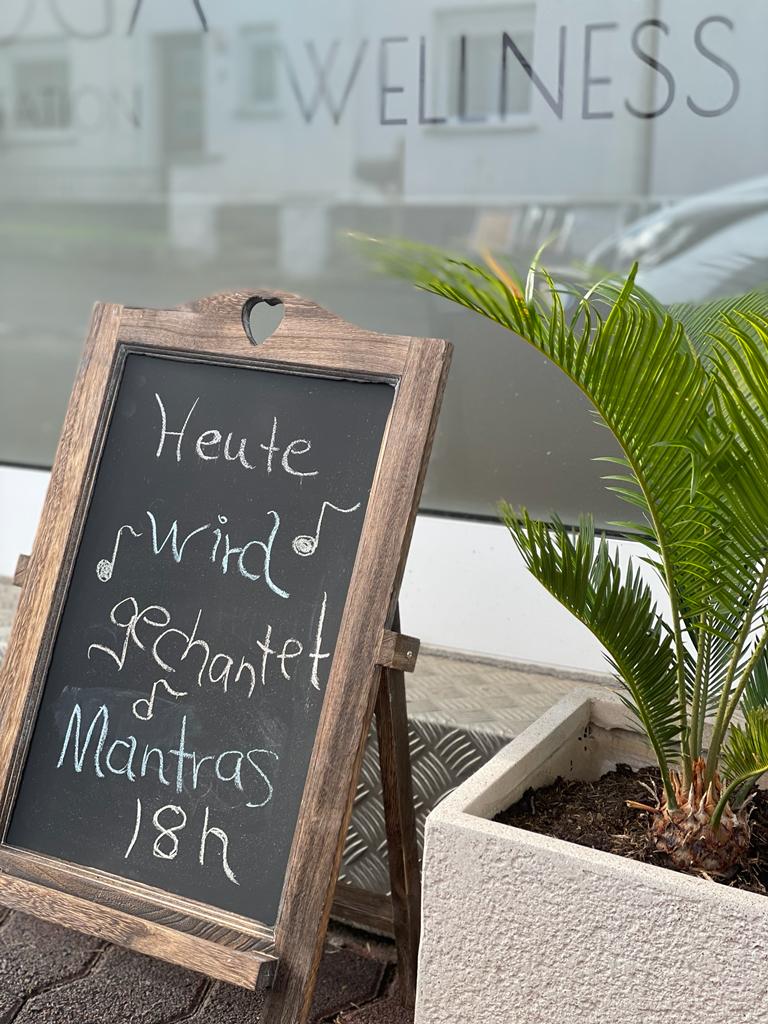 WELLNESS
Heute
wird
gechantet
Mantras
18h